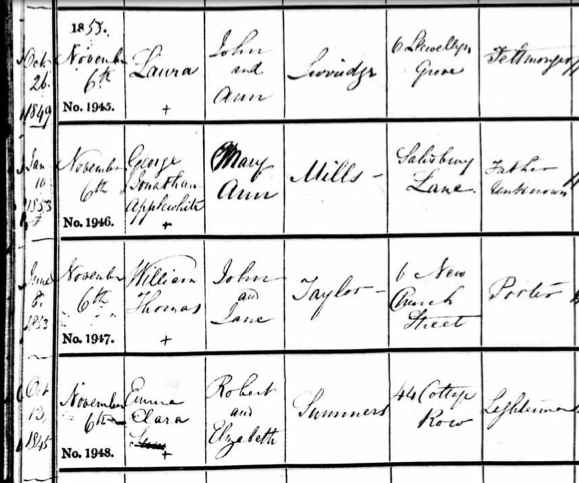 Oct
26
1849
1853.
November
6th
No. 1945.
Laura
+
John
and
Ann
6 Llewellyn
Grove
Fellmonger
Jan
10
1853
November
6th
No. 1946.
George
Jonathan
Applewhite
+
Mary
Ann
Mills
Salisbury
Lane
Father
Unknown
June
8
1853
November
6th
No. 1947.
William
Thomas
+
John
and
Jane
Taylor
6 New
Church
Street
Porter
Oct
13
1845
November
6th
No. 1948.
Emma
Clara
+
Robert
and
Elizabeth
Summers
44 Cottage
Row
Lighterman